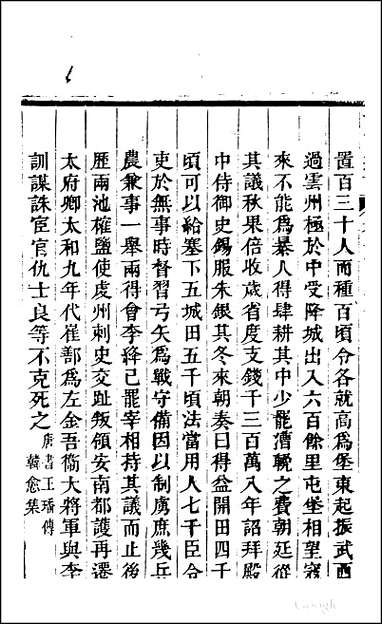 置百三十人而種百頃令各就高為堡東起振武西
過雲州極於中受降城出入六百餘里屯堡相望寇
來不能為暴人得肆耕其中少罷漕輓之費朝廷從
其議秋果倍收歲省度支錢千三百萬入年詔拜殿
中侍御史錫服朱銀其冬來朝奏曰得益開田四千
頃可以給塞下五城田五千頃法當用人七千臣令
吏於無事時督習弓矢為戰守備因以制虜庶幾兵
農兼事一舉兩得會李絳已罷宰相持其議而止後
歷兩池榷鹽使虔州刺史交趾叛領安南都護再遷
太府卿太和九年代崔鄯為左金吾衞大將軍與李
訓謀誅宦官仇士良等不克死之唐書王璠傳韓愈集